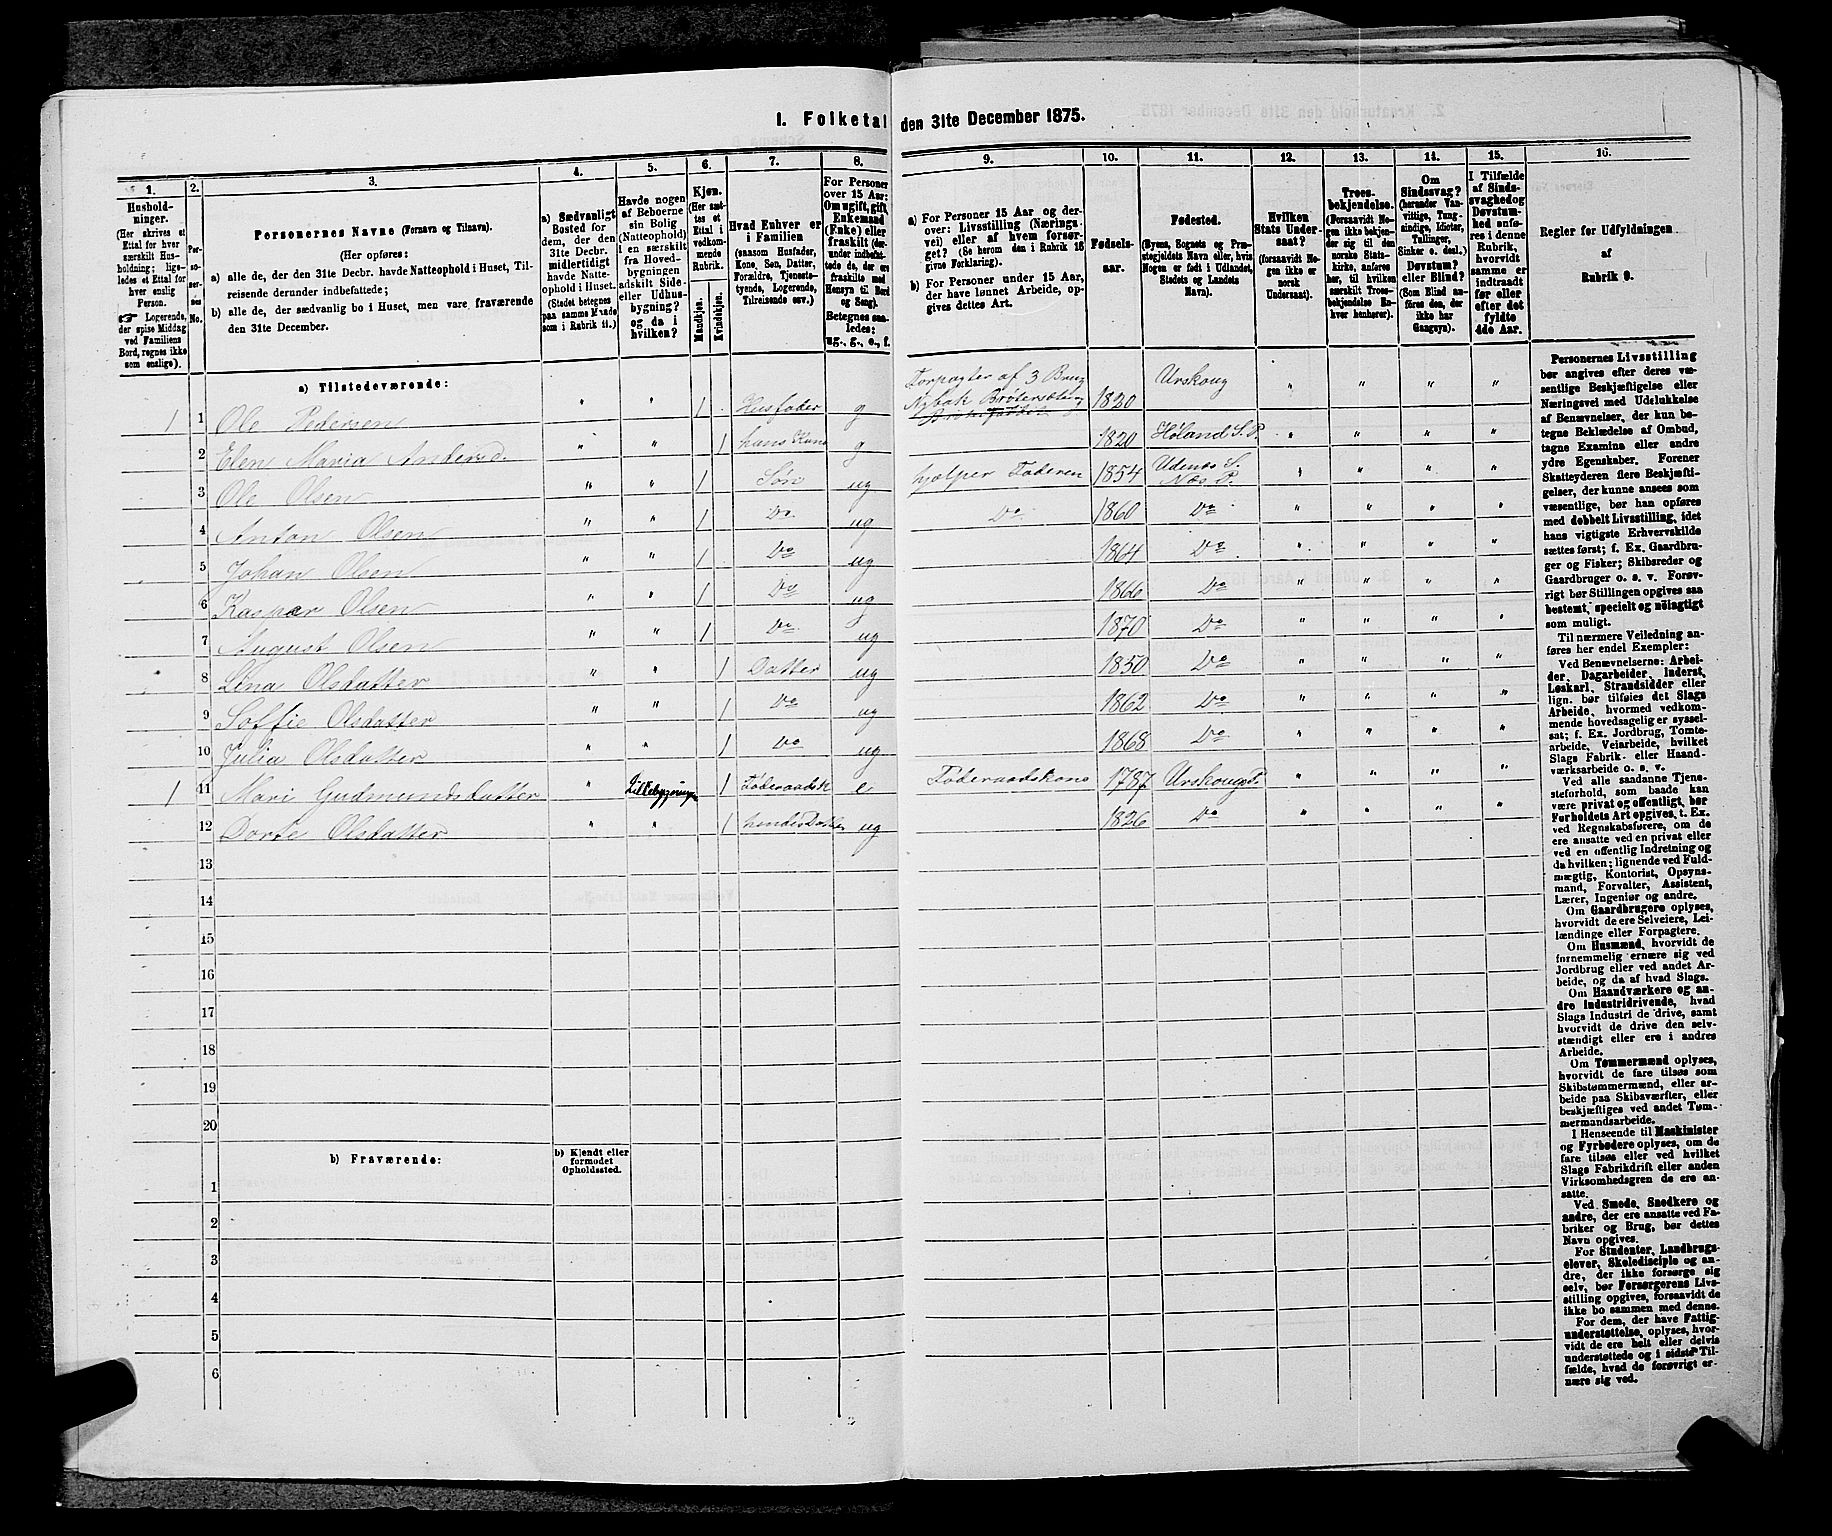 1. Folketal den 31te December 1875.
1.
Hushold-
ninger.
(Her skrives et
Ettal for hver
særskilt Hus-
holdning; lige-
ledes et Ettal for
hver enslig
Person.
Logerende,
der spise Middag
ved Familiens
Bord, regnes ikke
som enslige).
2.
Per-
so-
ner-
nes
No.
3.
Personernes Navne (Fornavn og Tilnavn).
(Her opføres:
a) alle de, der den 31te Decbr. havde Natteophold i Huset, Til-
reisende derunder indbefattede;
b) alle de, der sædvanlig bo i Huset, men vare fraværende
den 31te December.
4.
a) Sædvanligt
Bosted for
dem, der den
31te Decbr.
midlertidigt
havde Natte-
ophold i Huset.
(Stedet betegnes
paa samme Maade
som i Rubrik 11.)
5.
Havde nogen
af Beboerne
sin Bolig
(Natteophold)
i en særskilt
fra Hoved-
bygningen
adskilt Side-
eller Udhus-
bygning?
og da i
hvilken?
6.
Kjøn.
(Her sæt-
tes et
Ettal i
vedkom-
mende
Rubrik.
Mandkjøn.
Kvindekjøn.
7.
Hvad Enhver er
i Familien
(saasom Husfader,
Kone, Søn, Datter,
Forældre, Tjeneste-
tyende, Logerende,
Tilreisende osv.)
8.
For Personer
over 15 Aar:
Om ugift, gift,
Enkemand
(Enke) eller
fraskilt (der-
under indbefat-
tede de, der ere
fraskilte med
Hensyn til Bord
og Seng).
Betegnes saa-
ledes:
ug., g., e., f.
9.
a) For Personer 15 Aar og der-
over: Livsstilling (Nærings-
vei) eller af hvem forsør-
get? (Se herom den i Rubrik 16
givne Forklaring).
b) For Personer under 15 Aar,
der have lønnet Arbeide, op-
gives dettes Art.
10.
Fødsels-
aar.
11.
Fødested.
(Byens, Sognets og Præ-
stegjeldets Navn eller, hvis
Nogen er født i Udlandet,
Stedets og Landets
Navn).
12.
Hvilken
Stats Under-
saat?
(forsaavidt No-
gen ikke er
norsk
Undersaat).
13.
Troes-
bekjendelse.
(Forsaavidt No-
gen ikke bekjen-
der sig til den
norske Stats-
kirke, anføres
her, til hvilken
særskilt Troes-
bekjendelse En-
hver henhører).
14.
Om
Sindssvag?
(herunder Van-
vittige, Tung-
sindige, Idioter,
Tullinger,
Sinker o. desl.).
Døvstum?
eller Blind?
(Som Blind an-
føres den, der
ikke har
Gangsyn).
15.
I Tilfælde
af Sinds-
svaghed og
Døvstum-
hed anfø-
res i denne
Rubrik,
hvorvidt
samme er
indtraadt
før eller
efter det
fyldte
4de Aar.
16.
Regler for Udfyldningen
af
Rubrik 9.
a) Tilstedeværende:
1 1 Ole Pedersen " " 1 . Husfader g Forpagter af 3 Brug Nybak Brøtersæter 1820 Urskoug " " " "
2 Elen Maria Andersd. " " 1 hans Kone g 1820 Høland S. P. " " " "
3 Ole Olsen " " 1 Søn ug hjælper Faderen 1854 Udenæs S. Næs P. " " " "
4 Anton Olsen " " 1 Do ug Do 1860 Do " " " "
5 Johan Olsen " " 1 Do ug 1864 Do " " " "
6 Kaspar Olsen " " 1 Do ug 1866 Do " " " "
7 August Olsen " " 1 Do ug 1870 Do " " " "
8 Lina Olsdatter " " 1 Datter ug 1850 Do " " " "
9 Soffie Olsdatter " " 1 Do ug 1862 Do " " " "
10 Julia Olsdatter " " 1 Do ug 1868 Do " " " "
1 11 Mari Gudmundsdatter " 1 Føderaadsk e Føderaadskone 1787 Urskoug P. " " " "
12 Dorte Olsdatter " " 1 hendes Datter ug 1826 Do " " " "
13
14
15
16
17
18
19
20
b) Fraværende:
b) Kjendt eller
formodet
Opholdssted.
1
2
3
4
5
6
Personernes Livsstilling
bør angives efter deres væ-
sentlige Beskjæftigelse eller
Næringsvei med Udelukkelse
af Benævnelser, der kun be-
tegne Beklædelse af Ombud,
tagne Examina eller andre
ydre Egenskaber. Forener
Skatteyderen flere Beskjæfti-
gelser, der kunne ansees som
væsentlige, bør han opføres
med dobbelt Livsstilling, idet
hans vigtigste Erhvervskilde
sættes først; f. Ex. Gaardbru-
ger og Fisker; Skibsreder og
Gaardbruger o. s. v. Forøv-
rigt bør Stillingen opgives saa
bestemt, specielt og nöiagtigt
som muligt.
Til nærmere Veiledning an-
føres her endel Exempler:
Ved Benævnelserne: Arbei-
der, Dagarbeider, Inderst,
Løskarl, Strandsidder eller
lign. bør tilføies det Slags
Arbeide, hvormed vedkom-
mende hovedsagelig er syssel-
sat; f. Ex. Jordbrug, Tomte-
arbeide, Veiarbeide, hvilket
Slags Fabrik- eller Haand-
værksarbeide o. s. v.
Ved alle saadanne Tjene-
steforhold, som baade kan
være privat og offentligt, bør
Forholdets Art opgives, t. Ex.
ved Regnskabsførere, om de
ere ansatte ved en privat eller
ved en offentlig Indretning og
da hvilken; lignende ved Fuld-
mægtig, Kontorist, Opsyns-
mand, Forvalter, Assistent,
Lærer, Ingeniør og andre.
Om Gaardbrugere oplyses,
hvorvidt de ere Selveiere, Lei-
lændinge eller Forpagtere.
Om Husmænd, hvorvidt de
fornemmelig ernære sig ved
Jordbrug eller ved andet Ar-
beide, og da af hvad Slags.
Om Haandværkere og an-
dre Industridrivende, hvad
Slags Industri de drive, samt
hvorvidt de drive den selv-
stændigt eller ere i andres
Arbeide.
Om Tømmermænd oplyses,
hvorvidt de fare tilsøs som
Skibstømmermænd, eller ar-
beide paa Skibsværfter, eller
beskjæftiges ved andet Tøm-
mermandsarbeide.
I Henseende til Maskinister
og Fyrbødere oplyses, om de
fare tilsøs eller ved hvilket
Slags Fabrikdrift eller anden
Virksomhedsgren de ere an-
satte.
Ved Smede, Snedkere og
andre, der ere ansatte ved Fa-
briker og Brug, bør dettes
Navn opgives.
For Studenter, Landbrugs-
elever, Skoledisciple og an-
dre, der ikke forsørge sig
selv, bør Forsørgerens Livs-
stilling opgives, forsaavidt de
ikke bo sammen med denne.
For dem, der have Fattig-
understøttelse, oplyses, hvor-
vidt de ere helt eller delvis
understøttede og i sidste Til-
fælde, hvad de forøvrigt er-
nære sig ved.